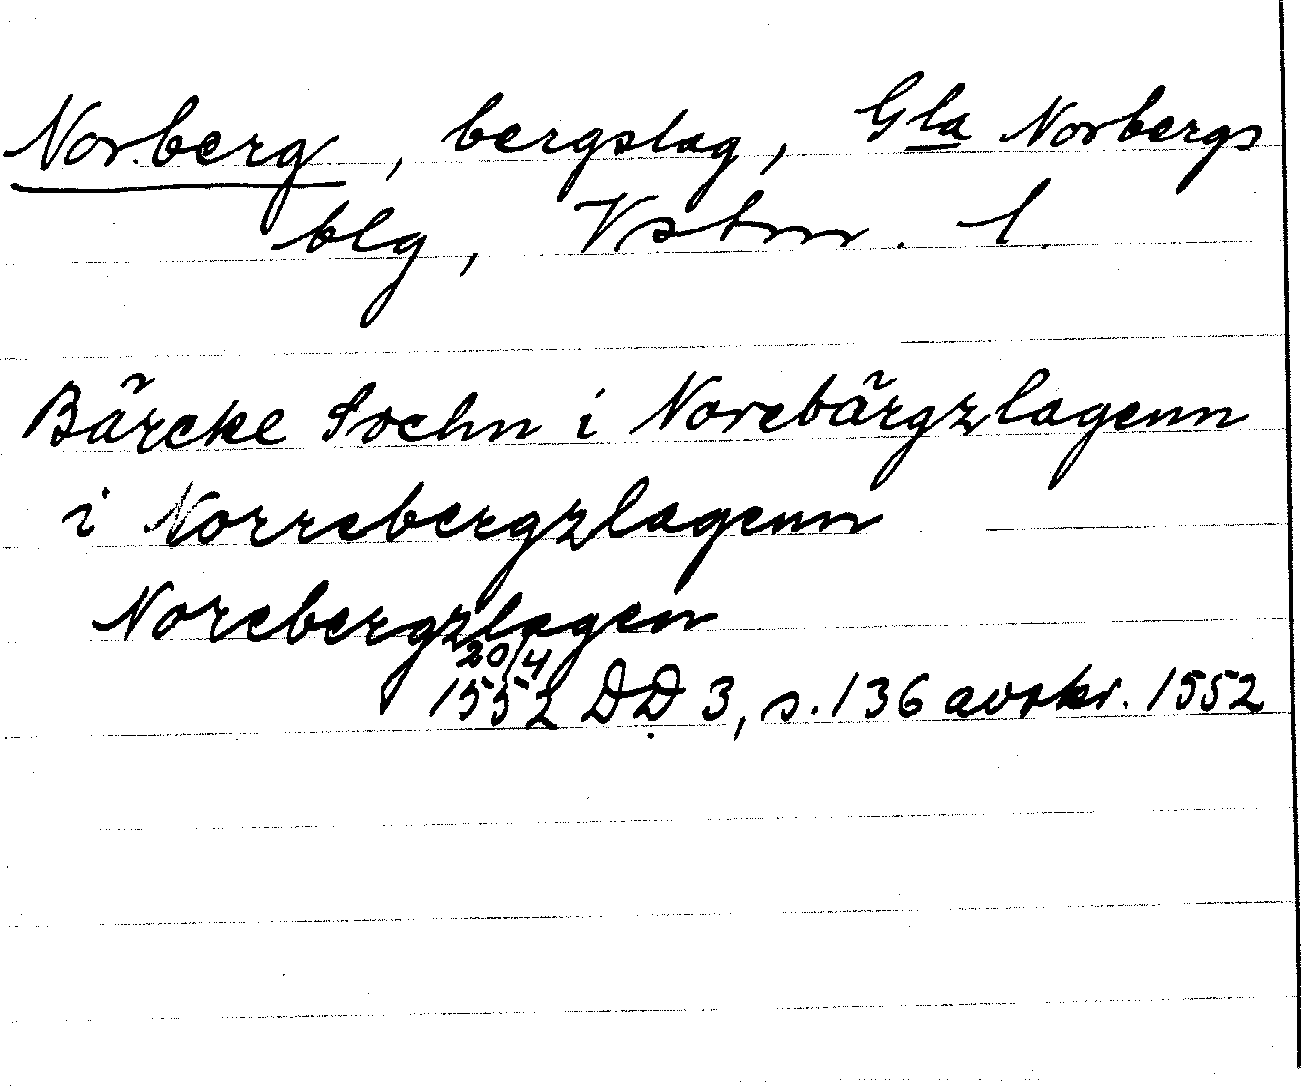 Norberg, bergslag, Gla Norbergs
blg, Vstm. l.
Bärcke Sochn i Norebärgzlagenn
i Norrebergzlagenn
Norebergzlagen
20/4
1552 DD 3, s. 136 avskr. 1552